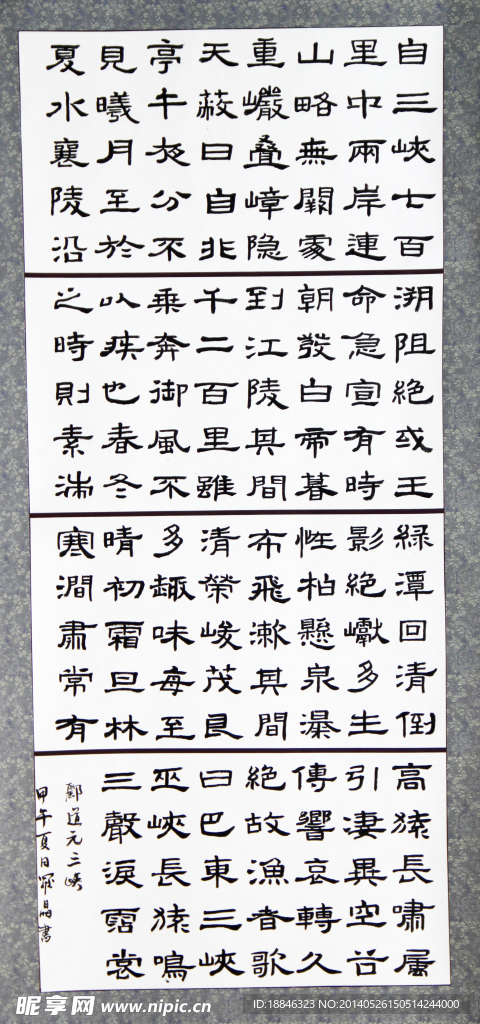 自三峽七百
里中兩岸連
山略無闕處
重巖叠嶂隐
天蔽日自非
亭午夜分不
見曦月至於
夏水襄陵沿
溯阻絶或王
命急宣有時
朝發白帝暮
到江陵其間
千二百里雖
乘奔御風不
以疾也春冬
之時則素湍
緑潭回清倒
影絶巘多生
怪柏懸泉瀑
布飛漱其間
清榮峻茂良
多趣味每至
晴初霜旦林
寒澗肅常有
高猿長嘯屬
引凄異空谷
傳響哀轉久
絶故漁者歌
曰巴東三峽
巫峽長猿鳴
三聲淚霑裳
酈道元三峽
甲午夏日晶書
昵享网 www.nipic.cn
ID:18846323 NO:20140526150514244000